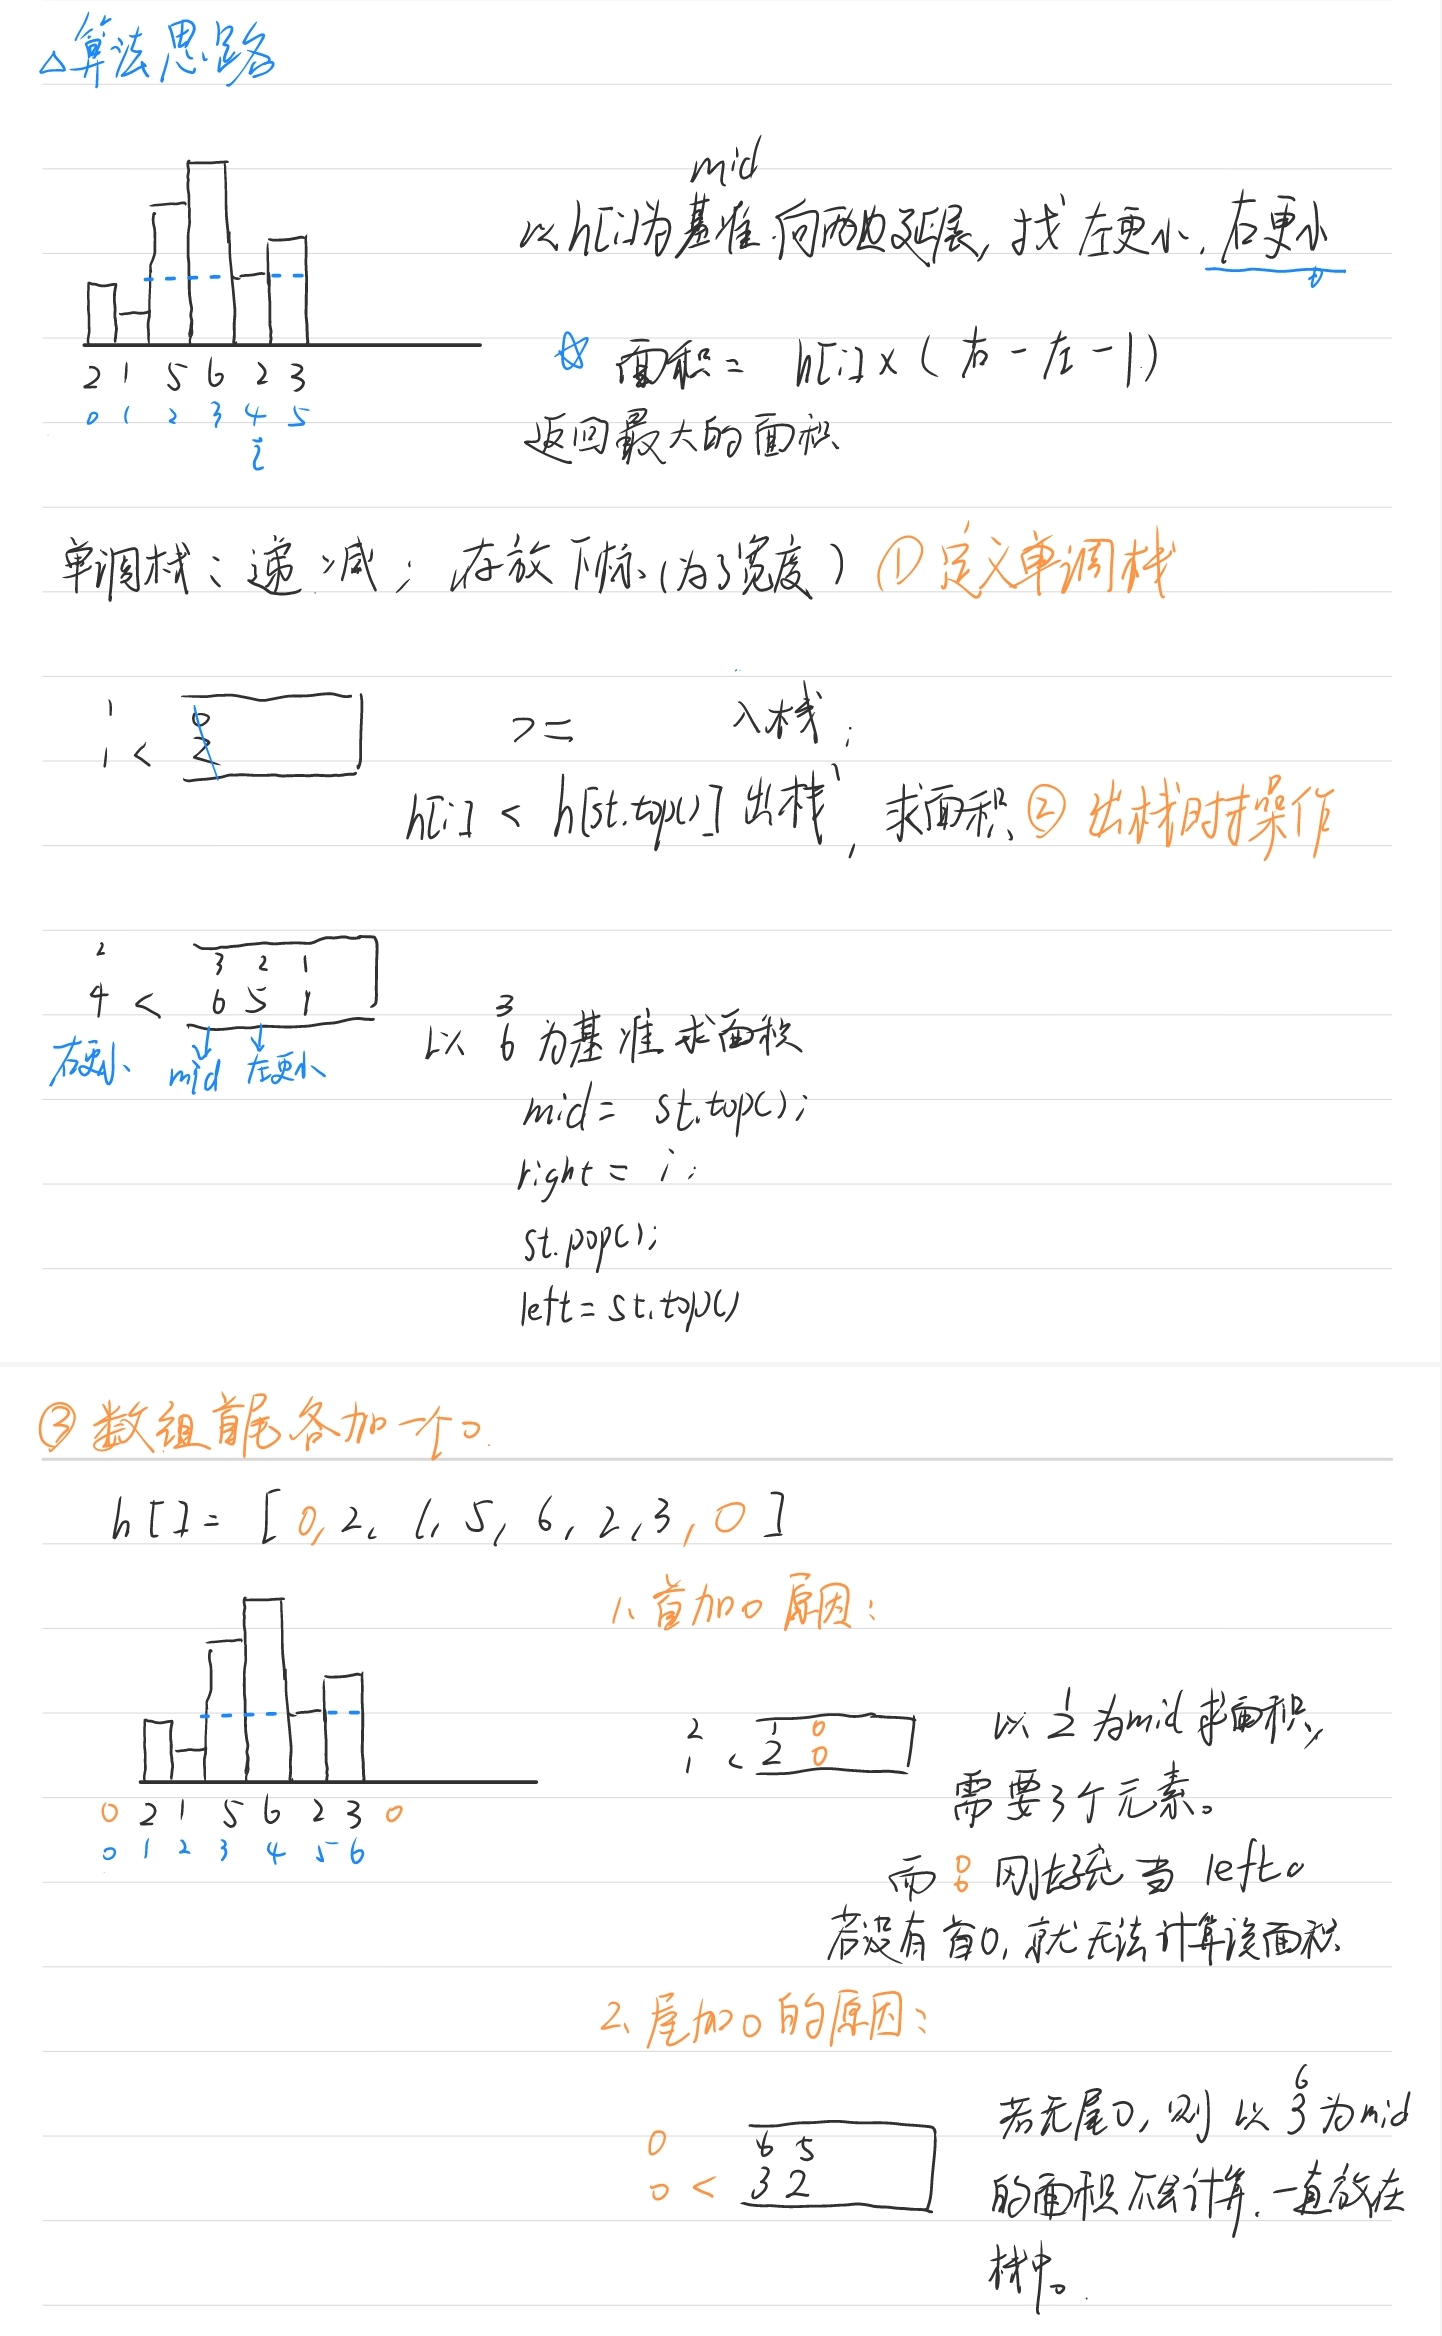 △算法思路
mid
以h[i]为基准向两边延展,找左更小,右更小
☆ 面积 = h[i] × (右 - 左 - 1)
返回最大的面积
2 1 5 6 2 3
0 1 2 3 4 5
i
单调栈:递减;存放下标(为了宽度) ①定义单调栈
1 0
1 < 2
>= 入栈;
h[i] < h[st.top()] 出栈,求面积 ②出栈时才操作
2 3 2 1
4 < 6 5 1
右更小 mid 左更小
3
以 6 为基准求面积
mid = st.top();
right = i;
st.pop();
left = st.top()
③数组首尾各加一个0.
h[] = [0, 2, 1, 5, 6, 2, 3, 0]
1、首加0原因:
0 2 1 5 6 2 3 0
0 1 2 3 4 5 6
2 1 0
1 < 2 0
1
以 2 为mid求面积,
需要3个元素。
0
而 0 刚好充当 left。
若没有首0,就无法计算该面积
2、尾加0的原因:
0 6 5
0 < 3 2
6
若无尾0,则以 3 为mid
的面积不会计算,一直放在
栈中。